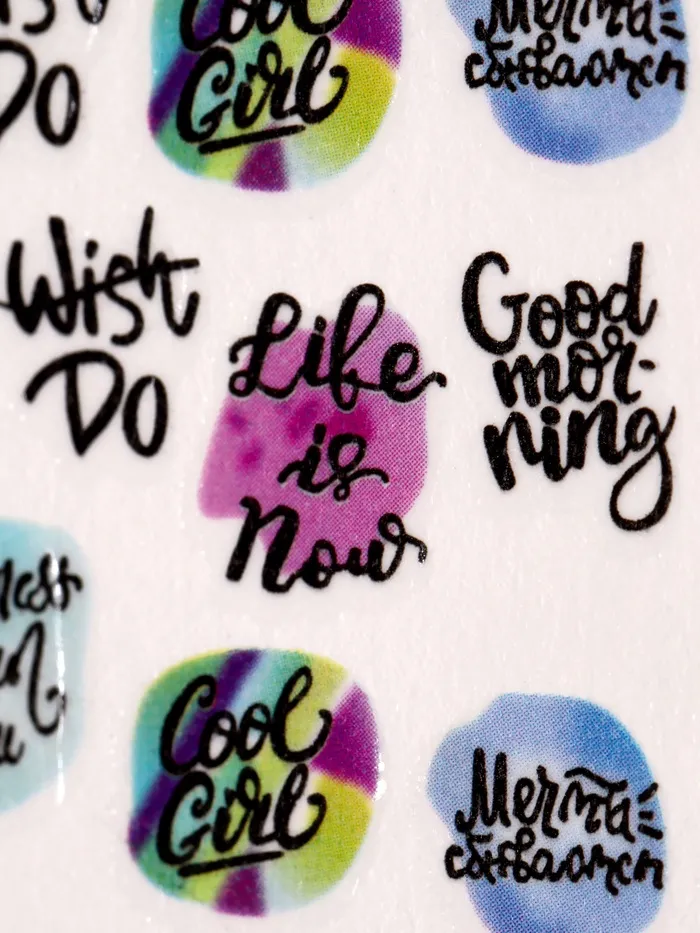 Do
Cool
Girl
Мечты
сбываются
Wish
Do
Life
is
Now
Good
mor-
ning
Cool
Girl
Мечты
сбываются